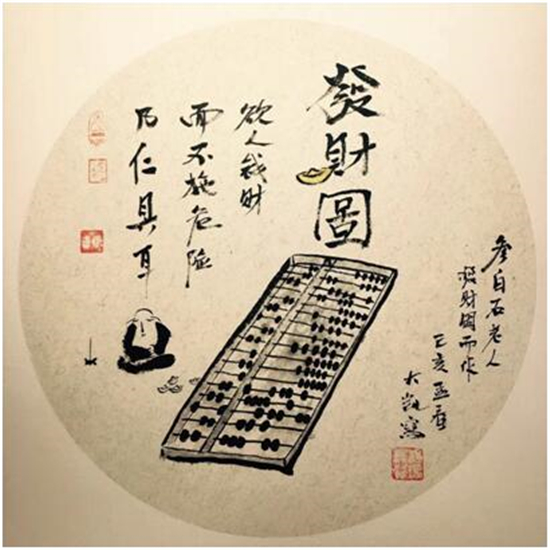 發財圖
欲人钱财
而不施危险
乃仁具耳
參白石老人
發財圖而作
己亥孟春
大凱寫